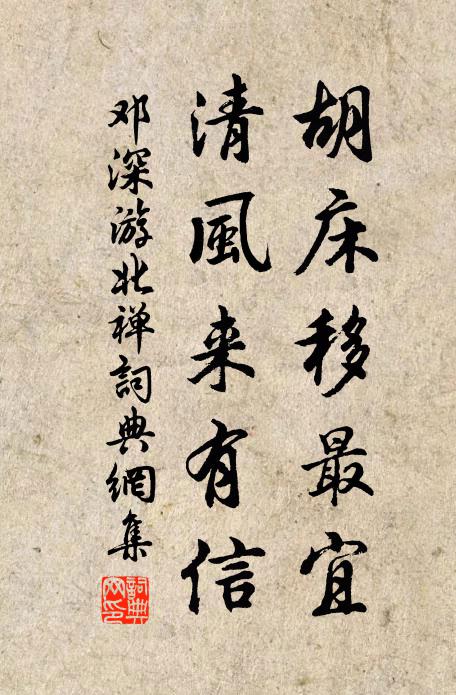 胡床移最宜
清風来有信
邓深游北禅詞典網集
詞典网印